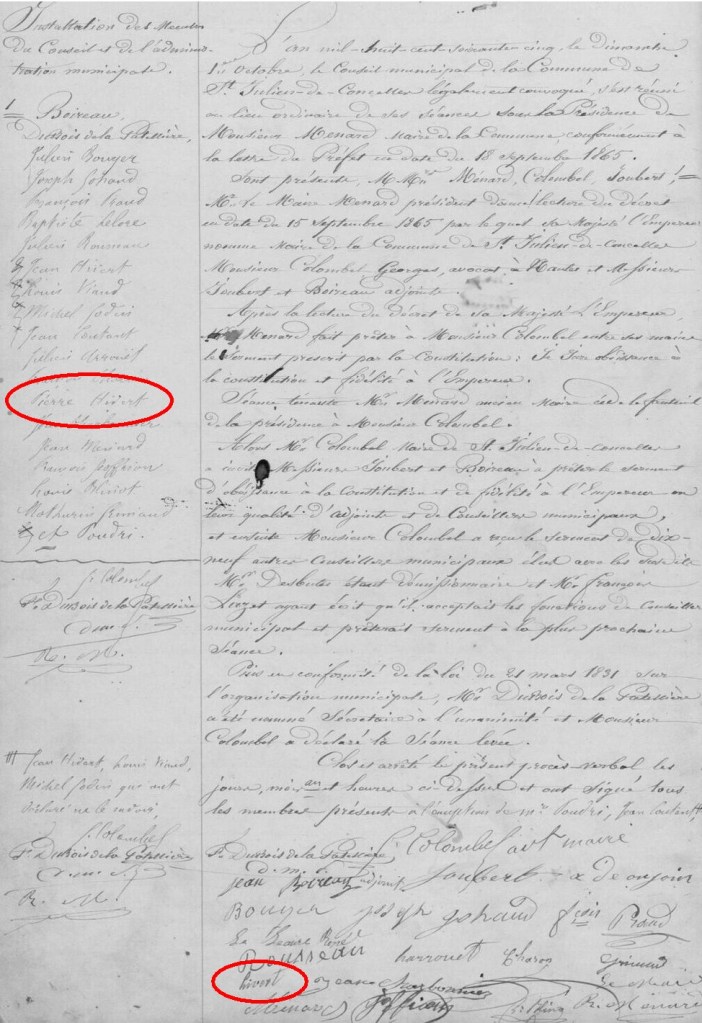 Installation des Membres
du Conseil et de l'adminis-
tration municipale.
1 Boireau,
DuBois de la Patissière,
Julien Bouyer
Joseph Gohaud
François Viaud
Baptiste Lelore
Julien Rousseau
Jean Hivert
Louis Viaud
Michel Godin
Jean Coutant
Félicien
Pierre Hivert
Jean
Jean Ménard
François
Louis
Mathurin Grimaud
et Poudri.
G. Colombel
Ps DuBois de la Patissière
R. M.
Jean Hivert, Louis Viaud,
Michel Godin qui ont
déclaré ne le savoir,
G. Colombel
Ps DuBois de la Patissière
R. M.
L'an mil-huit-cent soixante-cinq, le dimanche
1er octobre, le Conseil municipal de la Commune de
St Julien-de-Concelles légalement convoqué, s'est réuni
au lieu ordinaire de ses séances sous la Présidence de
Monsieur Menard Maire de la Commune, conformément à
la lettre du Préfet en date du 18 septembre 1865.
Sont présents, M. Mrs Ménard, Colombel, Joubert,
Mr le Maire Menard président donne lecture du Décret
en date du 15 septembre 1865 par lequel sa Majesté l'Empereur
nomme Maire de la Commune de St Julien-de-Concelles
Monsieur Colombel Georges, avocat, à Nantes et Messieurs
Joubert et Boireau adjoints.
Après la lecture du décret de sa Majesté L'Empereur,
Mr Menard fait prêter à Monsieur Colombel entre ses mains
le serment prescrit par la Constitution: Je Jure obéissance à
la constitution et fidélité à l'Empereur.
Séance tenante Mr Menard ancien Maire cède le fauteuil
de la présidence à Monsieur Colombel.
Alors Mr Colombel Maire de St Julien-de-Concelles
a invité Messieurs Joubert et Boireau à prêter le serment
d'obéissance à la Constitution et de fidélité à l'Empereur en
leur qualité d'adjoints et de Conseillers municipaux,
et ensuite Monsieur Colombel a reçu le serment de Dix-
neuf autres Conseillers municipaux élus avec les susdits
Mr Desbutes étant démissionnaire et Mr François
ayant écrit qu'il acceptait les fonctions de Conseiller
municipal et prêterait serment à la plus prochaine
Séance.
Puis en conformité de la loi du 21 mars 1831 sur
l'organisation municipale, Mr DuBois de la Patissière
a été nommé Secrétaire à l'unanimité et Monsieur
Colombel a déclaré la Séance levée.
Clos et arrêté le présent procès-verbal les
jours, mois an et heures ci dessus et ont signé tous
les membres présents à l'exception de mrs Poudri, Jean Coutant,
Ps DuBois de la Patissière G. Colombel avt maire
jean Boireau adjoint Joubert
Bouyer joseph gohaud fcois Viaud
Rousseau harrouet
hivert
Menard R. Ménard